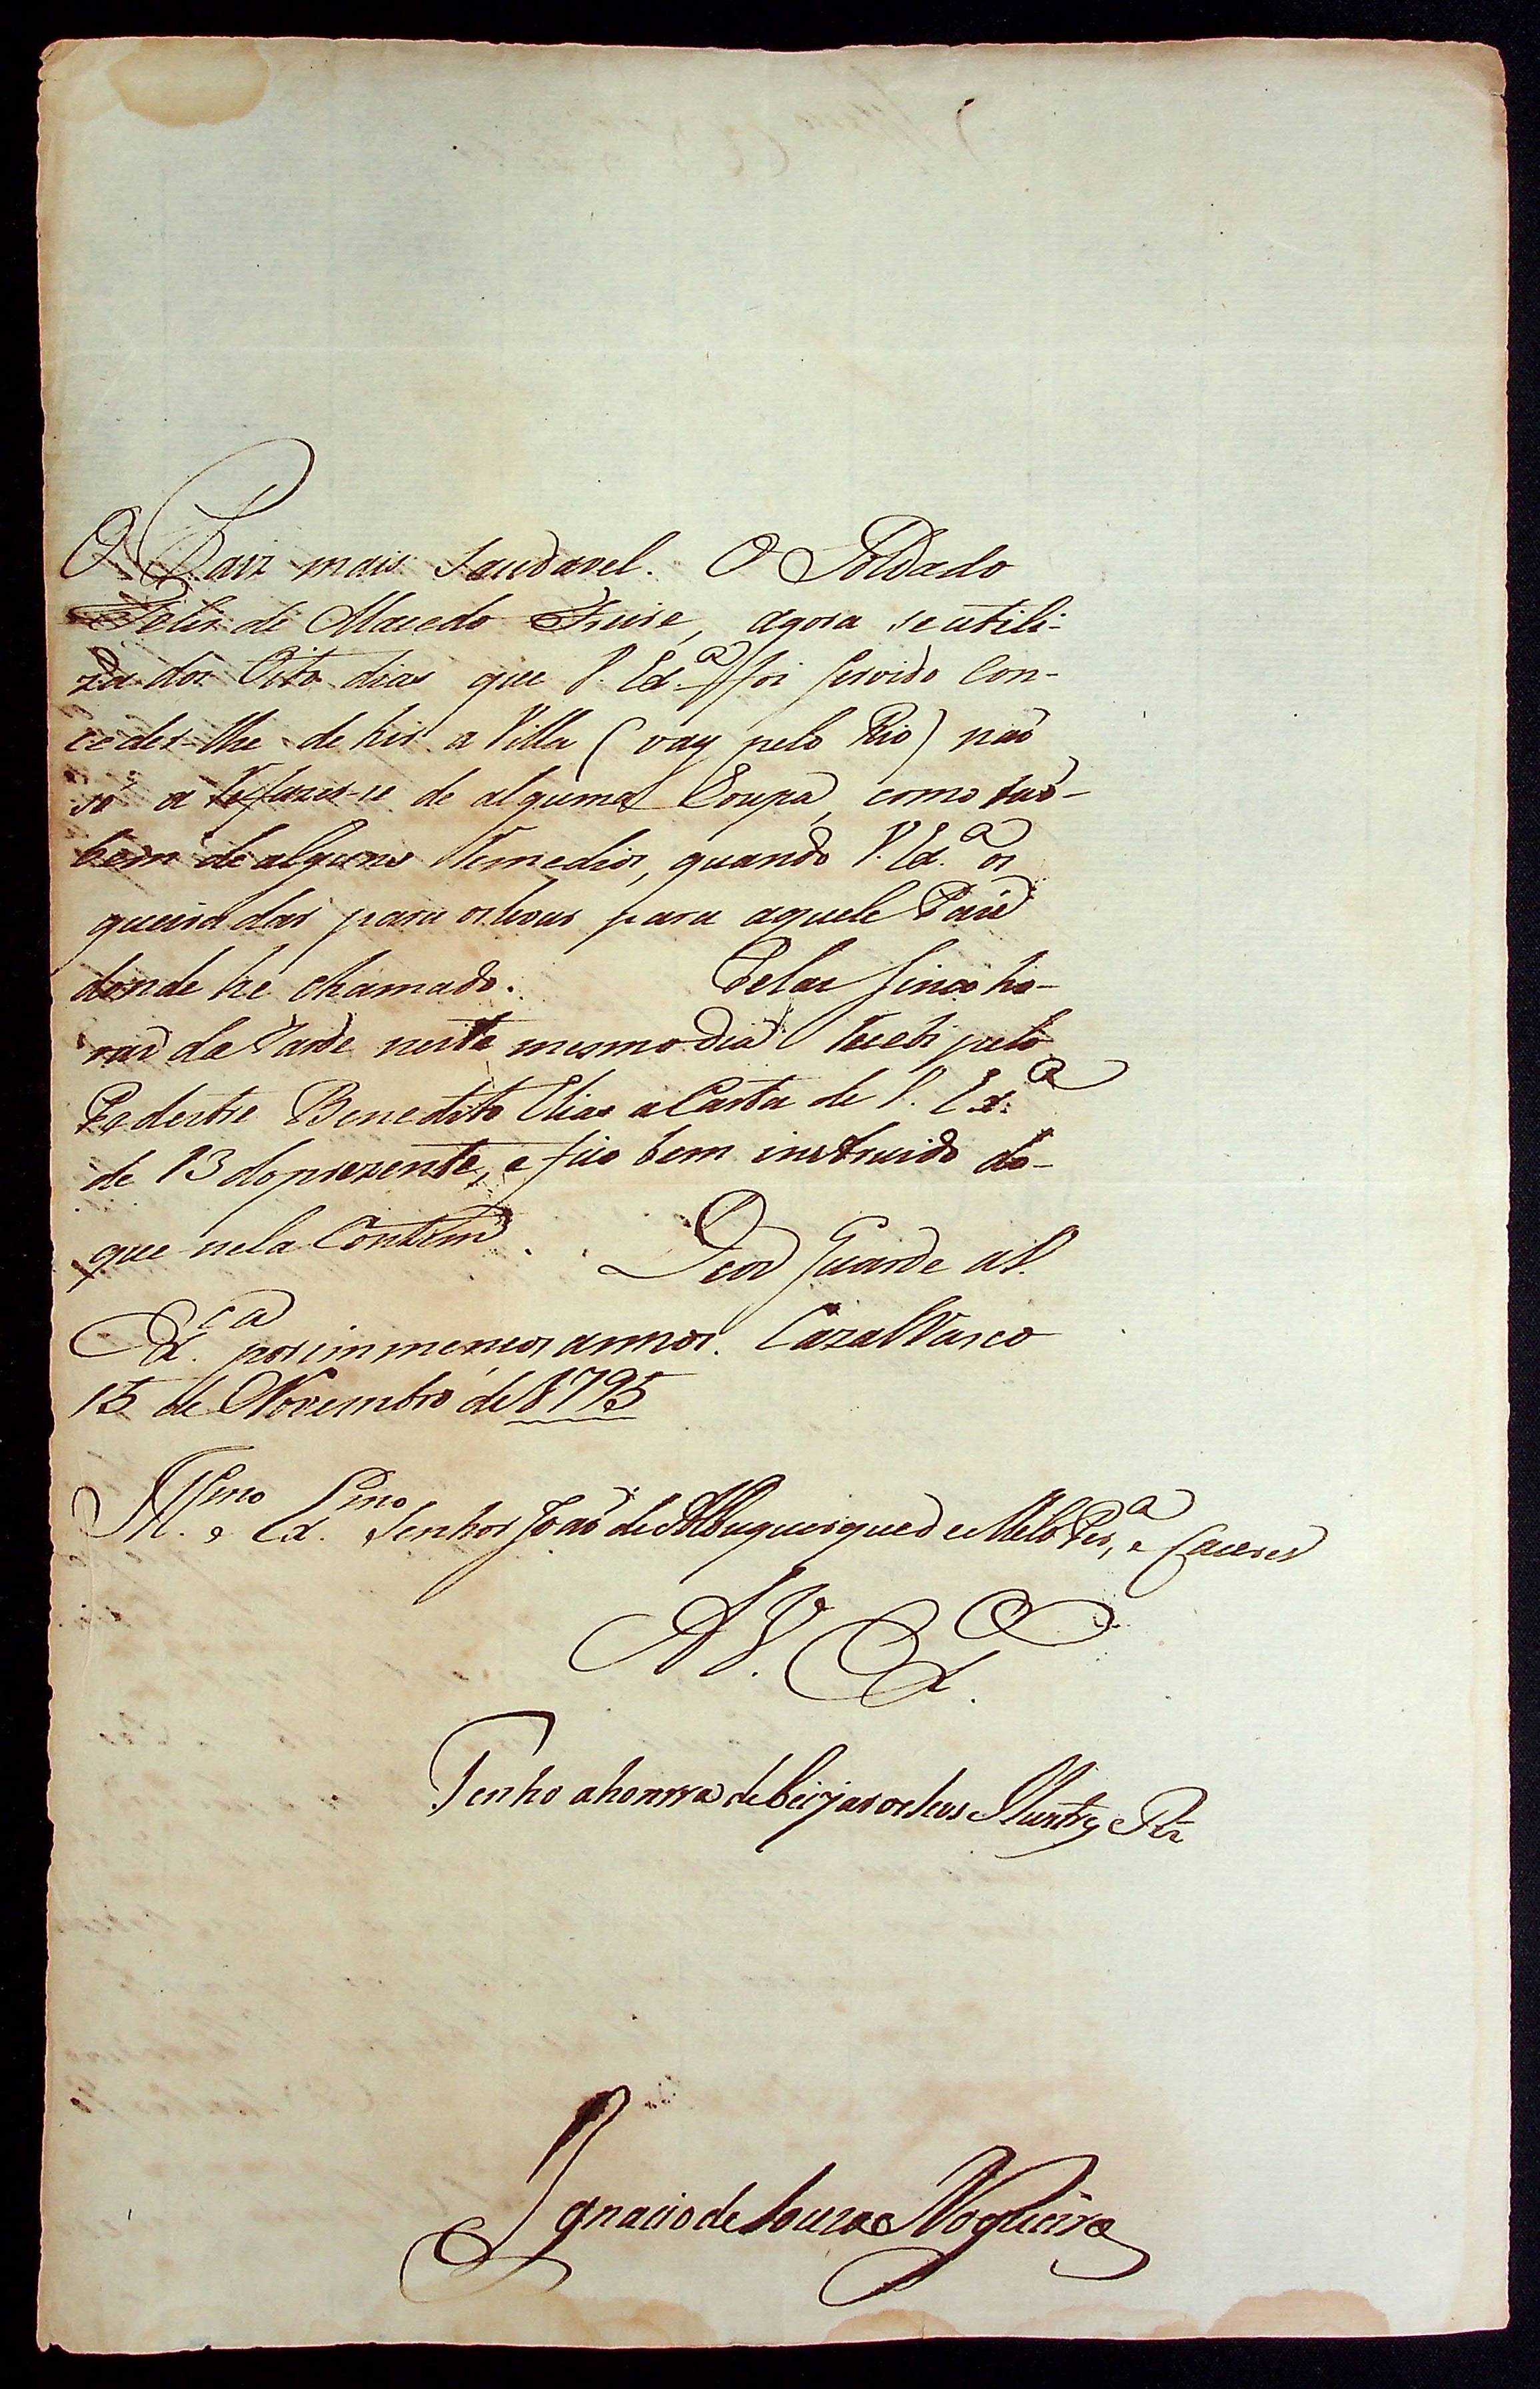 O Paiz mais Saudavel. O Soldado
Felix de Macedo Freire, agora se utili-
za dos Oito dias que V. Ex.ª foi servido Con-
ceder-lhe de hir a Villa (vay pelo Rio) naõ
só a Refazer-se de alguma Roupa, como taõ-
bem de alguns Remedios, quando V. Ex.ª os
queira dar para os levar para aquele Paiz
donde he chamado. Pelas sinco ho-
ras da Tarde neste mesmo dia Recebi pelo
Pedestre Benedito Elias a Carta de V. Ex.ª
de 13 do prezente, e fico bem instruido do-
que nela Contem. Deos Guarde a V.
Ex.ᶜᵃ por immensos annos. Cazal Vasco
15 de Novembro de 1795
Ill.ᵐᵒ e Ex.ᵐᵒ Senhor Joaõ de Albuquerque de Mello Per.ª e Caceres
A V. Ex.ª
Tenho a honrra de beijar os hes
Ignacio de Souza Nogueira